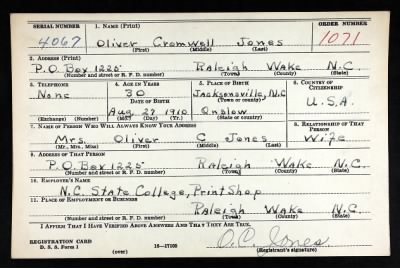 SERIAL NUMBER 1. NAME (Print) ORDER NUMBER
4067 Oliver Cromwell Jones 1071
(First) (Middle) (Last)
2. ADDRESS (Print)
P.O. Box 1225 Raleigh Wake N.C.
(Number and street or R. F. D. number) (Town) (County) (State)
3. TELEPHONE 4. AGE IN YEARS 5. PLACE OF BIRTH 6. COUNTRY OF CITIZENSHIP
None 30 Jacksonville, N.C
DATE OF BIRTH (Town or county)
Aug 27 1910 Onslow U.S.A.
(Exchange) (Number) (Mo.) (Day) (Yr.) (State or country)
7. NAME OF PERSON WHO WILL ALWAYS KNOW YOUR ADDRESS 8. RELATIONSHIP OF THAT PERSON
Mrs. Oliver C Jones Wife
(Mr., Mrs., Miss) (First) (Middle) (Last)
9. ADDRESS OF THAT PERSON
P.O. Box 1225 Raleigh Wake N.C.
(Number and street or R. F. D. number) (Town) (County) (State)
10. EMPLOYER'S NAME
N.C. State College, Print Shop
11. PLACE OF EMPLOYMENT OR BUSINESS
Raleigh Wake N.C.
(Number and street or R. F. D. number) (Town) (County) (State)
I AFFIRM THAT I HAVE VERIFIED ABOVE ANSWERS AND THAT THEY ARE TRUE.
REGISTRATION CARD
D. S. S. Form 1 16—17105 O.C. Jones
(over) (Registrant's signature)